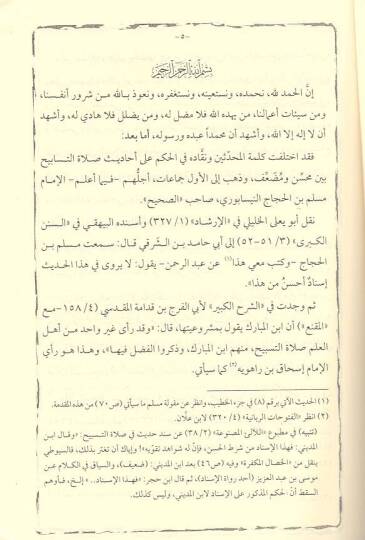 - ٥ -
بسم الله الرحمن الرحيم
إنَّ الحمد لله، نحمده، ونستعينه، ونستغفره، ونعوذ بالله من شرور أنفسنا،
ومن سيئات أعمالنا، من يهده الله فلا مضل له، ومن يضلل فلا هادي له، وأشهد
أن لا إله إلا الله، وأشهد أن محمداً عبده ورسوله، أما بعد:
فقد اختلفت كلمة المحدّثين ونقَّاده في الحكم على أحاديث صلاة التسابيح
بين محسّن ومُضَعِّف، وذهب إلى الأول جماعات، أجلُّهم -فيما أعلم- الإمام
مسلم بن الحجاج النيسابوري، صاحب «الصحيح».
نقل أبو يعلى الخليلي في «الإرشاد» (١/ ٣٢٧) وأسنده البيهقي في «السنن
الكبرى» (٣/ ٥١-٥٢) إلى أبي حامد بن الشَّرقي قال: سمعت مسلم بن
الحجاج -وكتب معي هذا(١) عن عبد الرحمن- يقول: لا يروى في هذا الحديث
إسنادٌ أحسنُ من هذا».
ثم وجدت في «الشرح الكبير» لأبي الفرج بن قدامة المقدسي (٤/ ١٥٨-مع
«المقنع») أن ابن المبارك يقول بمشروعيتها، قال: «وقد رأى غير واحد من أهل
العلم صلاة التسبيح، منهم ابن المبارك، وذكروا الفضل فيها»، وهذا هو رأي
الإمام إسحاق بن راهويه(٢) كما سيأتي.
(١) الحديث الآتي برقم (٨) في جزء الخطيب، وانظر عن مقولة مسلم ما سيأتي (ص ٧٠) من هذه المقدمة.
(٢) انظر «الفتوحات الربانية» (٤/ ٣٢٠) لابن علّان.
(تنبيه) في مطبوع «اللآلئ المصنوعة» (٢/ ٣٨) عن سند حديث في صلاة التسبيح: «وقال ابن
المديني: فهذا الإسناد من شرط الحسن، فإنّ له شواهد تقوّيه»! وإياك أن تغتر بذلك، فالسيوطي
ينقل من «الخصال المكفرة» وفيه (ص٤٦) بعد ابن المديني: (ضعيف)، والسياق في الكلام عن
موسى بن عبد العزيز (أحد رواة الإسناد)، ثم قال ابن حجر: «فهذا الإسناد.. » إلخ، فأوهم
السقط أنّ الحكم المذكور على الإسناد لابن المديني، وليس كذلك.